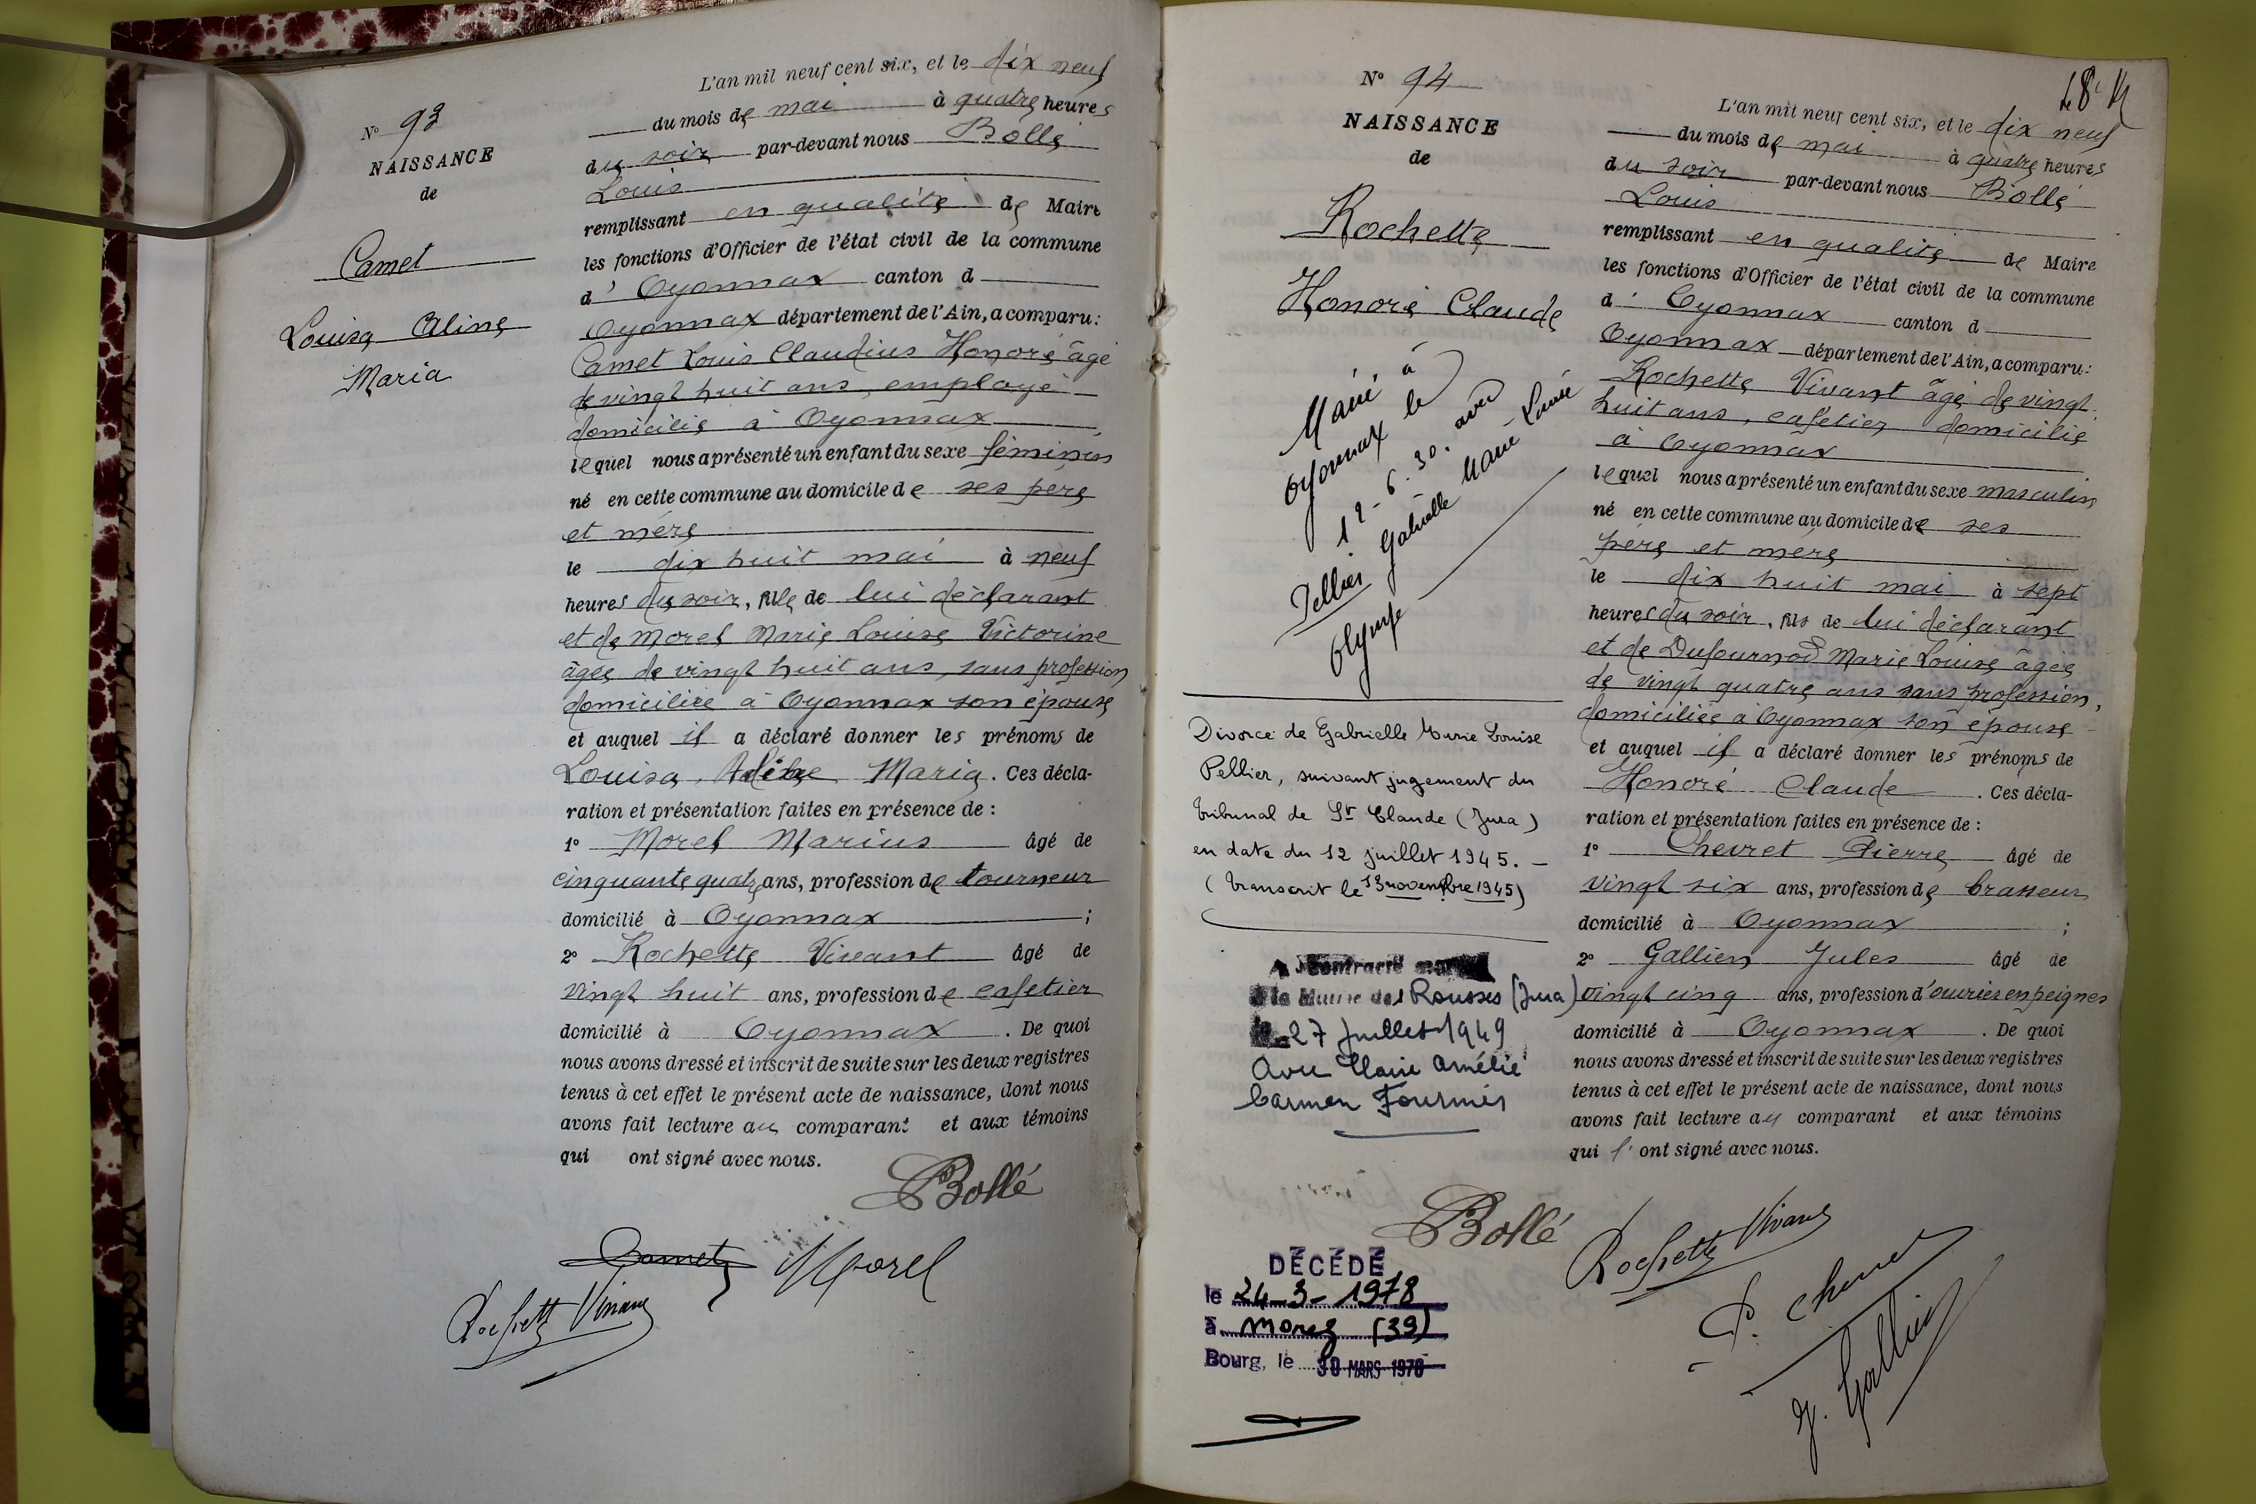 L'an mil neuf cent six, et le dix neuf
N° 93
du mois de mai à quatre heures
NAISSANCE
du soir par-devant nous Bollé
de
Louis
remplissant en qualité de Maire
les fonctions d'Officier de l'état civil de la commune
Camet
d' Oyonnax canton d
Louisa Aline
Oyonnax département de l'Ain, a comparu :
Maria
Camet Louis Claudius Honoré âgé
de vingt huit ans, employé
domicilié à Oyonnax
lequel nous a présenté un enfant du sexe féminin
né en cette commune au domicile de ses père
et mère
le dix huit mai à neuf
heures du soir, fille de lui déclarant
et de Morel Marie Louise Victorine
âgée de vingt huit ans, sans profession
domiciliée à Oyonnax son épouse
et auquel il a déclaré donner les prénoms de
Louisa, Maria. Ces décla-
ration et présentation faites en présence de :
1° Morel Marius âgé de
cinquante quatre ans, profession de tourneur
domicilié à Oyonnax ;
2° Rochette Vivant âgé de
vingt huit ans, profession de cafetier
domicilié à Oyonnax. De quoi
nous avons dressé et inscrit de suite sur les deux registres
tenus à cet effet le présent acte de naissance, dont nous
avons fait lecture au comparant et aux témoins
qui ont signé avec nous.
Bollé
Camet Morel
Rochette Vivant
N° 94
NAISSANCE
de
Rochette
Honoré Claude
Marié à
Oyonnax le
12-6.30. avec
Pellier Gabrielle Marie Louise
Olympe
Divorcé de Gabrielle Marie Louise
Pellier, suivant jugement du
tribunal de St Claude (Jura)
en date du 12 juillet 1945. —
(transcrit le 13 novembre 1945)
A contracté mariage
à la Mairie des Rousses (Jura)
le 27 Juillet 1949
Avec Marie Amélie
Carmen Fournier
L'an mil neuf cent six, et le dix neuf
du mois de mai à quatre heures
du soir par-devant nous Bollé
Louis
remplissant en qualité de Maire
les fonctions d'Officier de l'état civil de la commune
d' Oyonnax canton d
Oyonnax département de l'Ain, a comparu :
Rochette Vivant âgé de vingt
huit ans, cafetier domicilié
à Oyonnax
lequel nous a présenté un enfant du sexe masculin
né en cette commune au domicile de ses
père et mère
le dix huit mai à sept
heures du soir, fils de lui déclarant
et de Dufournod Marie Louise âgée
de vingt quatre ans sans profession,
domiciliée à Oyonnax son épouse
et auquel il a déclaré donner les prénoms de
Honoré Claude. Ces décla-
ration et présentation faites en présence de :
1° Chevret Pierre âgé de
vingt six ans, profession de brasseur
domicilié à Oyonnax ;
2° Gallien Jules âgé de
vingt cinq ans, profession d'ouvrier en peignes
domicilié à Oyonnax. De quoi
nous avons dressé et inscrit de suite sur les deux registres
tenus à cet effet le présent acte de naissance, dont nous
avons fait lecture au comparant et aux témoins
qui l'ont signé avec nous.
Bollé
Rochette Vivant
P. Chevret
J. Gallien
DÉCÉDÉ
le 24-3-1978
à Morez (39)
Bourg, le 30 MARS 1978